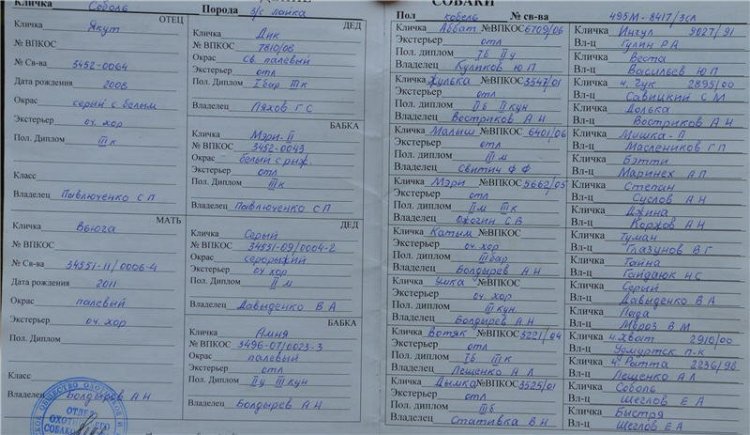 СОБАКИ
Кличка Соболь Порода з/с лайка
Пол кобель № св-ва 495М-8417/3сл
ОТЕЦ
Кличка Якут
№ ВПКОС
№ Св-ва 3452-0064
Дата рождения 2008
Окрас серый с белым
Экстерьер оч. хор
Пол. Диплом IIIк
Класс
Владелец Павлюченко С П
МАТЬ
Кличка Вьюга
№ ВПКОС
№ Св-ва 34551-11/0006-4
Дата рождения 2011
Окрас палевый
Экстерьер оч. хор
Пол. Диплом
Класс
Владелец Болдырев А Н
ДЕД
Кличка Дик
№ ВПКОС 7810/08
Окрас св. палевый
Экстерьер отл
Пол. Диплом
Владелец Ляхов Г С
БАБКА
Кличка Мэри-II
№ ВПКОС 3452-0043
Окрас белый с рыж.
Экстерьер отл
Пол. Диплом IIIк
Владелец Павлюченко С П
ДЕД
Кличка Серый
№ ВПКОС 34551-09/0004-2
Окрас серорыжий
Экстерьер оч хор
Пол. Диплом IIм
Владелец Давыденко В А
БАБКА
Кличка
№ ВПКОС 3496-07/0023-3
Окрас палевый
Экстерьер отл
Пол. Диплом IIу IIIкун
Владелец Болдырев А Н
Кличка Аббат №ВПКОС 6709/06
Экстерьер отл
Пол. диплом Iб IIу
Владелец Куликов Ю П
Кличка Хулька №ВПКОС 3547/01
Экстерьер отл
Пол. диплом IIб IIкун
Владелец Востриков А Н
Кличка Малыш №ВПКОС 6401/06
Экстерьер отл
Пол. диплом IIIм
Владелец Свитич Ф Ф
Кличка Мэри №ВПКОС 5662/05
Экстерьер отл
Пол. диплом IIм IIIк
Владелец С В
Кличка Катым №ВПКОС
Экстерьер оч хор
Пол. диплом IIIбар
Владелец Болдырев А Н
Кличка Умка №ВПКОС
Экстерьер оч. хор
Пол. диплом IIIкун
Владелец Болдырев А Н
Кличка Вотяк №ВПКОС 5221/04
Экстерьер отл
Пол. диплом Iб IIIк
Владелец Лещенко А Л
Кличка Дымка №ВПКОС 3525/01
Экстерьер отл
Пол. диплом IIб
Владелец Стативка В Н
Кличка Ингул 9027/91
Вл-ц Гулин Р А
Кличка Веста
Вл-ц Васильев Ю П
Кличка ч. Чук 2895/00
Вл-ц Савицкий С М
Кличка Долька
Вл-ц Востриков А Н
Кличка Мишка-II
Вл-ц Маслеников Г П
Кличка Бэтти
Вл-ц Маринех А П
Кличка Степан
Вл-ц Суслов А Н
Кличка Джина
Вл-ц Коржов А Н
Кличка Туман
Вл-ц Глазунов В Г
Кличка Тайна
Вл-ц Гайдаюк Н С
Кличка Серый
Вл-ц Давыденко В А
Кличка Лада
Вл-ц Мороз В М
Кличка ч. Хват 2910/00
Вл-ц Удмуртск п-к
Кличка 2236/98
Вл-ц Лещенко А Л
Кличка Соболь
Вл-ц Щеглов Е А
Кличка Быстря
Вл-ц Щеглов Е А
ОБЩЕСТВО ОХОТНИКОВ И
ОТДЕЛ